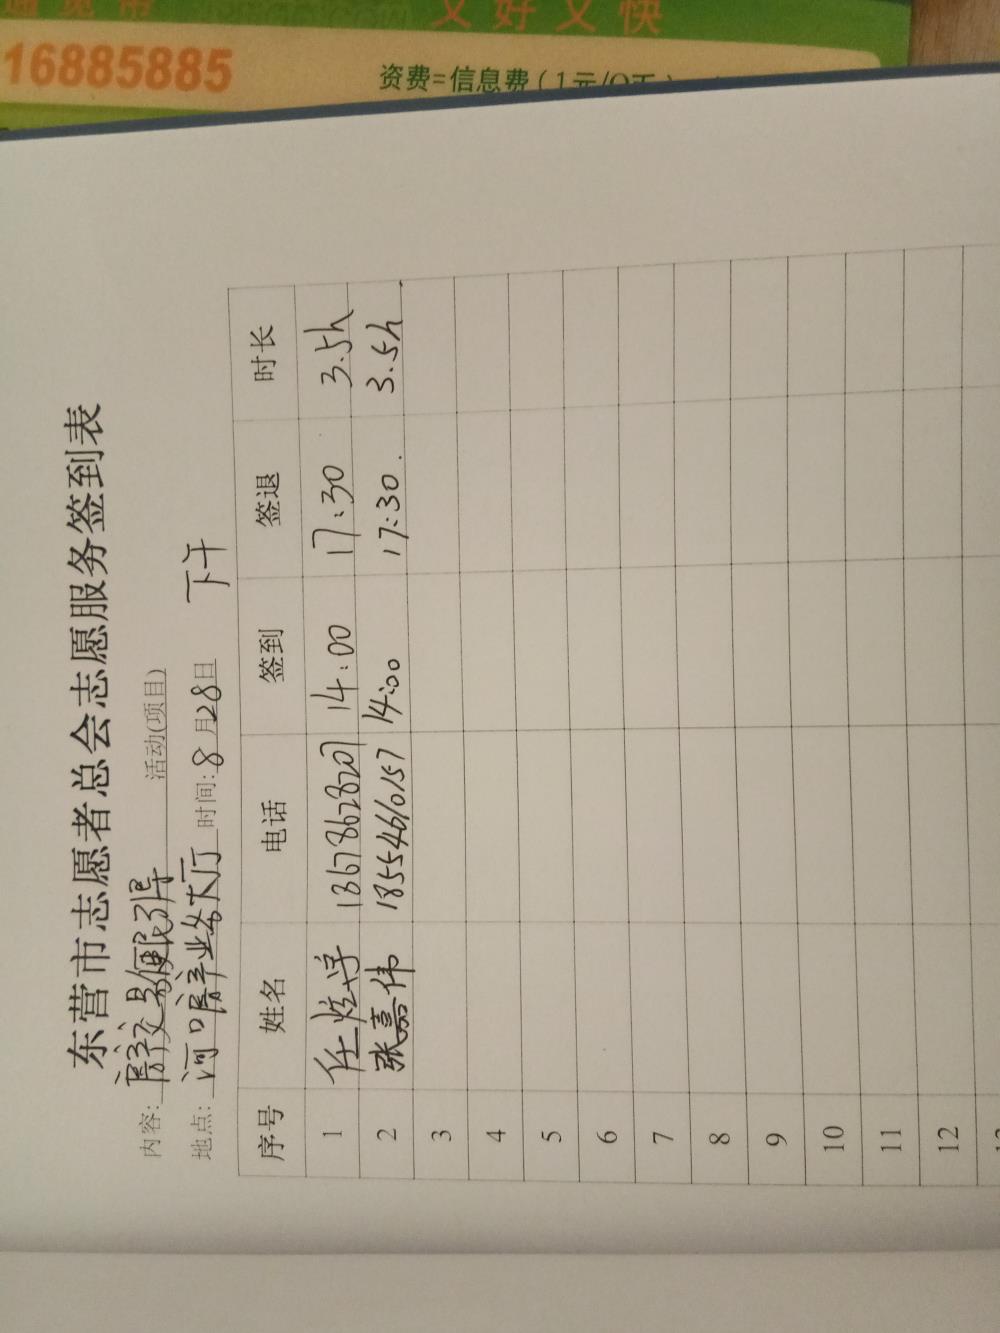 通宽带
又好又快
16885885
资费=信息费(1元/
东营市志愿者总会志愿服务签到表
内容: 房交易便民引导 活动(项目)
地点: 河口房产业务大厅 时间: 8月28日 下午
序号 姓名 电话 签到 签退 时长
1 任 13678628201 14:00 17:30 3.5h
2 张嘉伟 18554610157 14:00 17:30. 3.5h
3
4
5
6
7
8
9
10
11
12